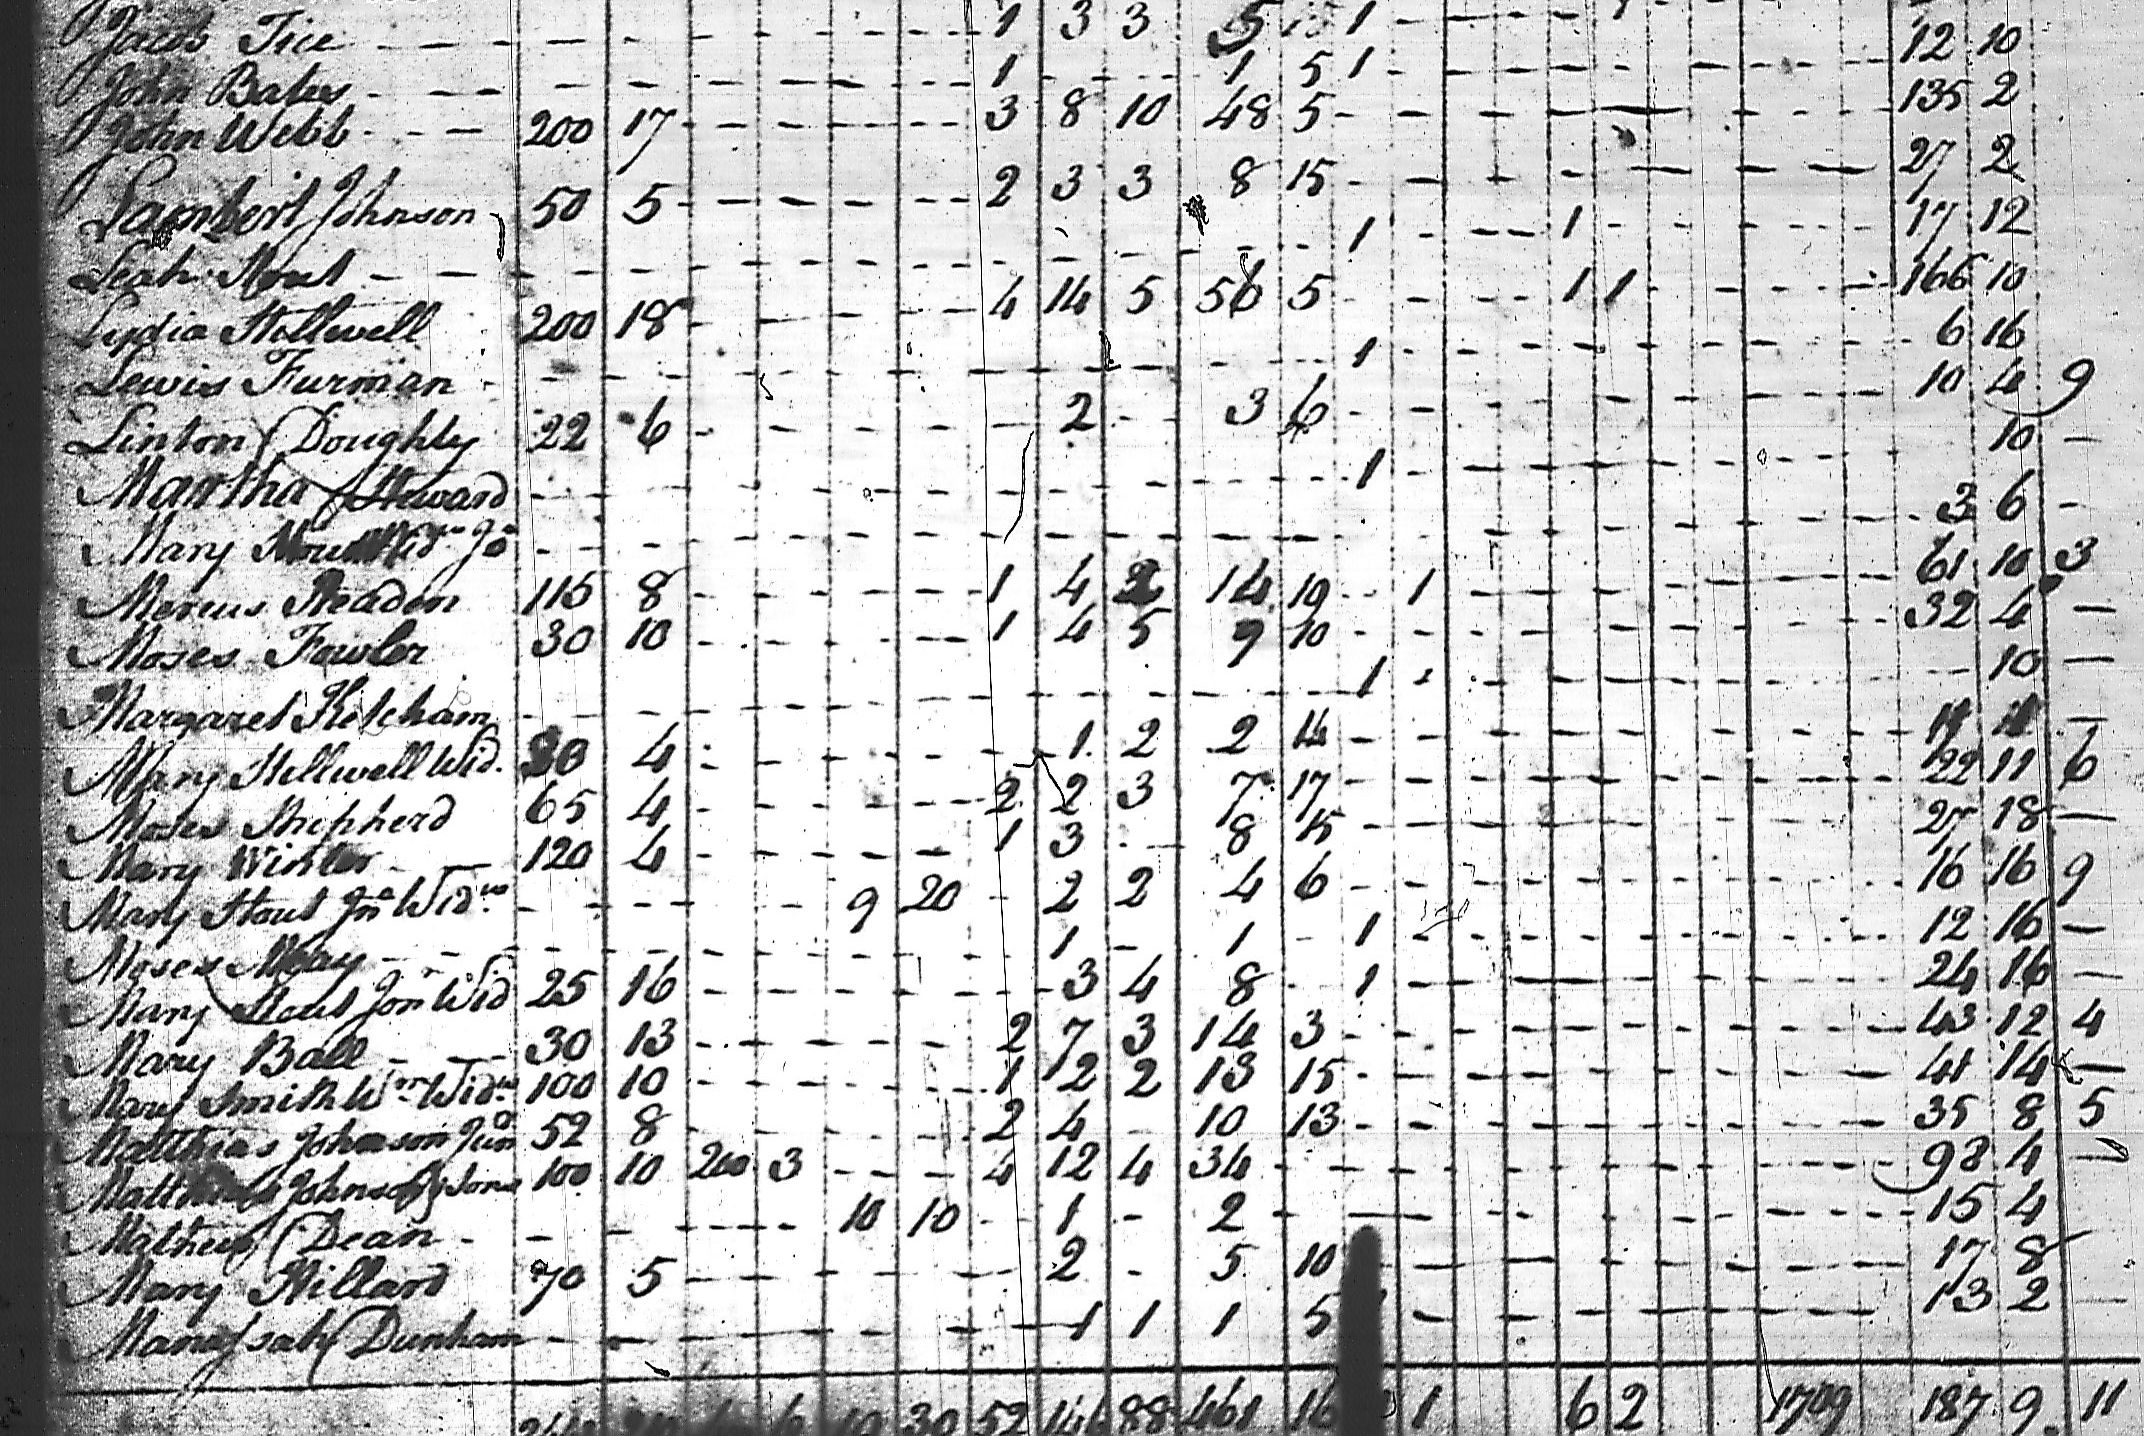 Jacob Tice - - - - - - 1 3 3 5 15 1 - - - - 12 10
John Bates - - - - - - 1 - - 1 5 1 - - - - 135 2
John Webb - - - 200 17 - - - - 3 8 10 48 5 - - - - 27 2
Lambert Johnson 50 5 - - - - 2 3 3 8 15 - - - - 17 12
Leah Stout - - - - - - - - - - 1 - - 1 - - - 166 10
Lydia Stillewell 200 18 - - - - 4 14 5 56 5 - - - 1 1 - - 6 16
Lewis Furman - - - - - - - - - 1 - - - - 10 4 9
Linton Doughty 22 6 - - - - - 2 - 3 6 - - - - 10 -
Martha Steward - - - - - - - - - 1 - - - - 3 6 -
Mary - - - - - - - - - - - - 61 10 3
Mercus Headen 115 8 - - - - 1 4 2 14 19 - 1 - - - 32 4 -
Moses Fowler 30 10 - - - - 1 4 5 9 10 - - - - 10 -
Margaret Ketcham - - - - - - - - - 1 - - - -
Mary Stillwell Wid. 30 4 - - - - - 1 2 2 14 - - - - 22 11 6
Moses Shepherd 65 4 - - - - 2 2 3 7 17 - - - - 27 18 -
Mary Winter 120 4 - - - - 1 3 - 8 15 - - - - 16 16 9
Mary Stout Jna Widw - - - - 9 20 - 2 2 4 6 - - - - 12 16 -
Moses May - - - - - - - 1 - 1 - 1 - - - - 24 16 -
Mary Stout Jonn Wid 25 16 - - - - - 3 4 8 - 1 - - - - 43 12 4
Mary Ball - - - 30 13 - - - - 2 7 3 14 3 - - - - 41 14 -
Mary Smith Wm Widw 100 10 - - - - 1 12 2 13 15 - - - - 35 8 5
Matthias Johnson Jun 52 8 - - - - 2 4 - 10 13 - - - - 98 4 -
Johnson 100 10 200 3 - - 4 12 4 34 - - - - 15 4
Mathew Dean - - - - 10 10 - 1 - 2 - - - - - 17 8
Mary Hillard 70 5 - - - - - 2 - 5 10 - - - - 13 2 -
Manassah Dunham - - - - - - 1 1 1 5 - - - -
6 10 30 52 146 88 461 16 1 6 2 1709 187 9 11